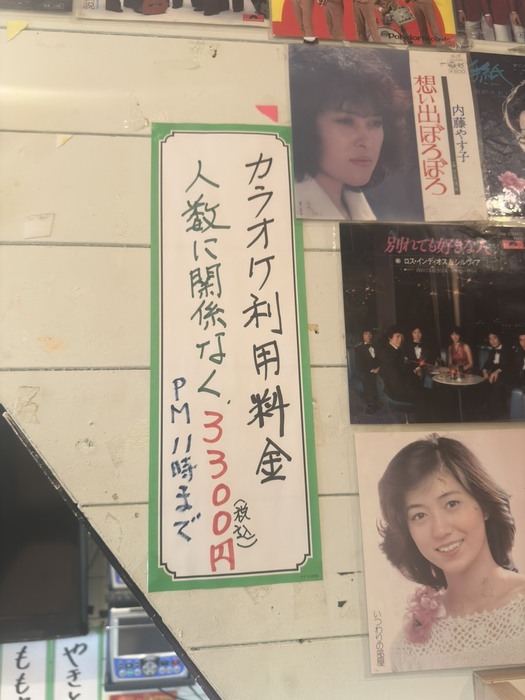 カラオケ利用料金
人数に関係なく、3300円
(税込)
PM11時まで
想い出ぼろぼろ
内藤やす子
別れても好きな人
ロス・インディオス&シルヴィア
いつわりの部屋
やき
もも